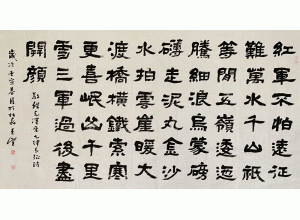 紅軍不怕遠征
難萬水千山只
等閒五嶺逶迤
騰細浪烏蒙磅
礴走泥丸金沙
水拍雲崖暖大
渡橋橫鐵索寒
更喜岷山千里
雪三軍過後盡
開顏
毛澤東七律長征詩
歲次壬寅